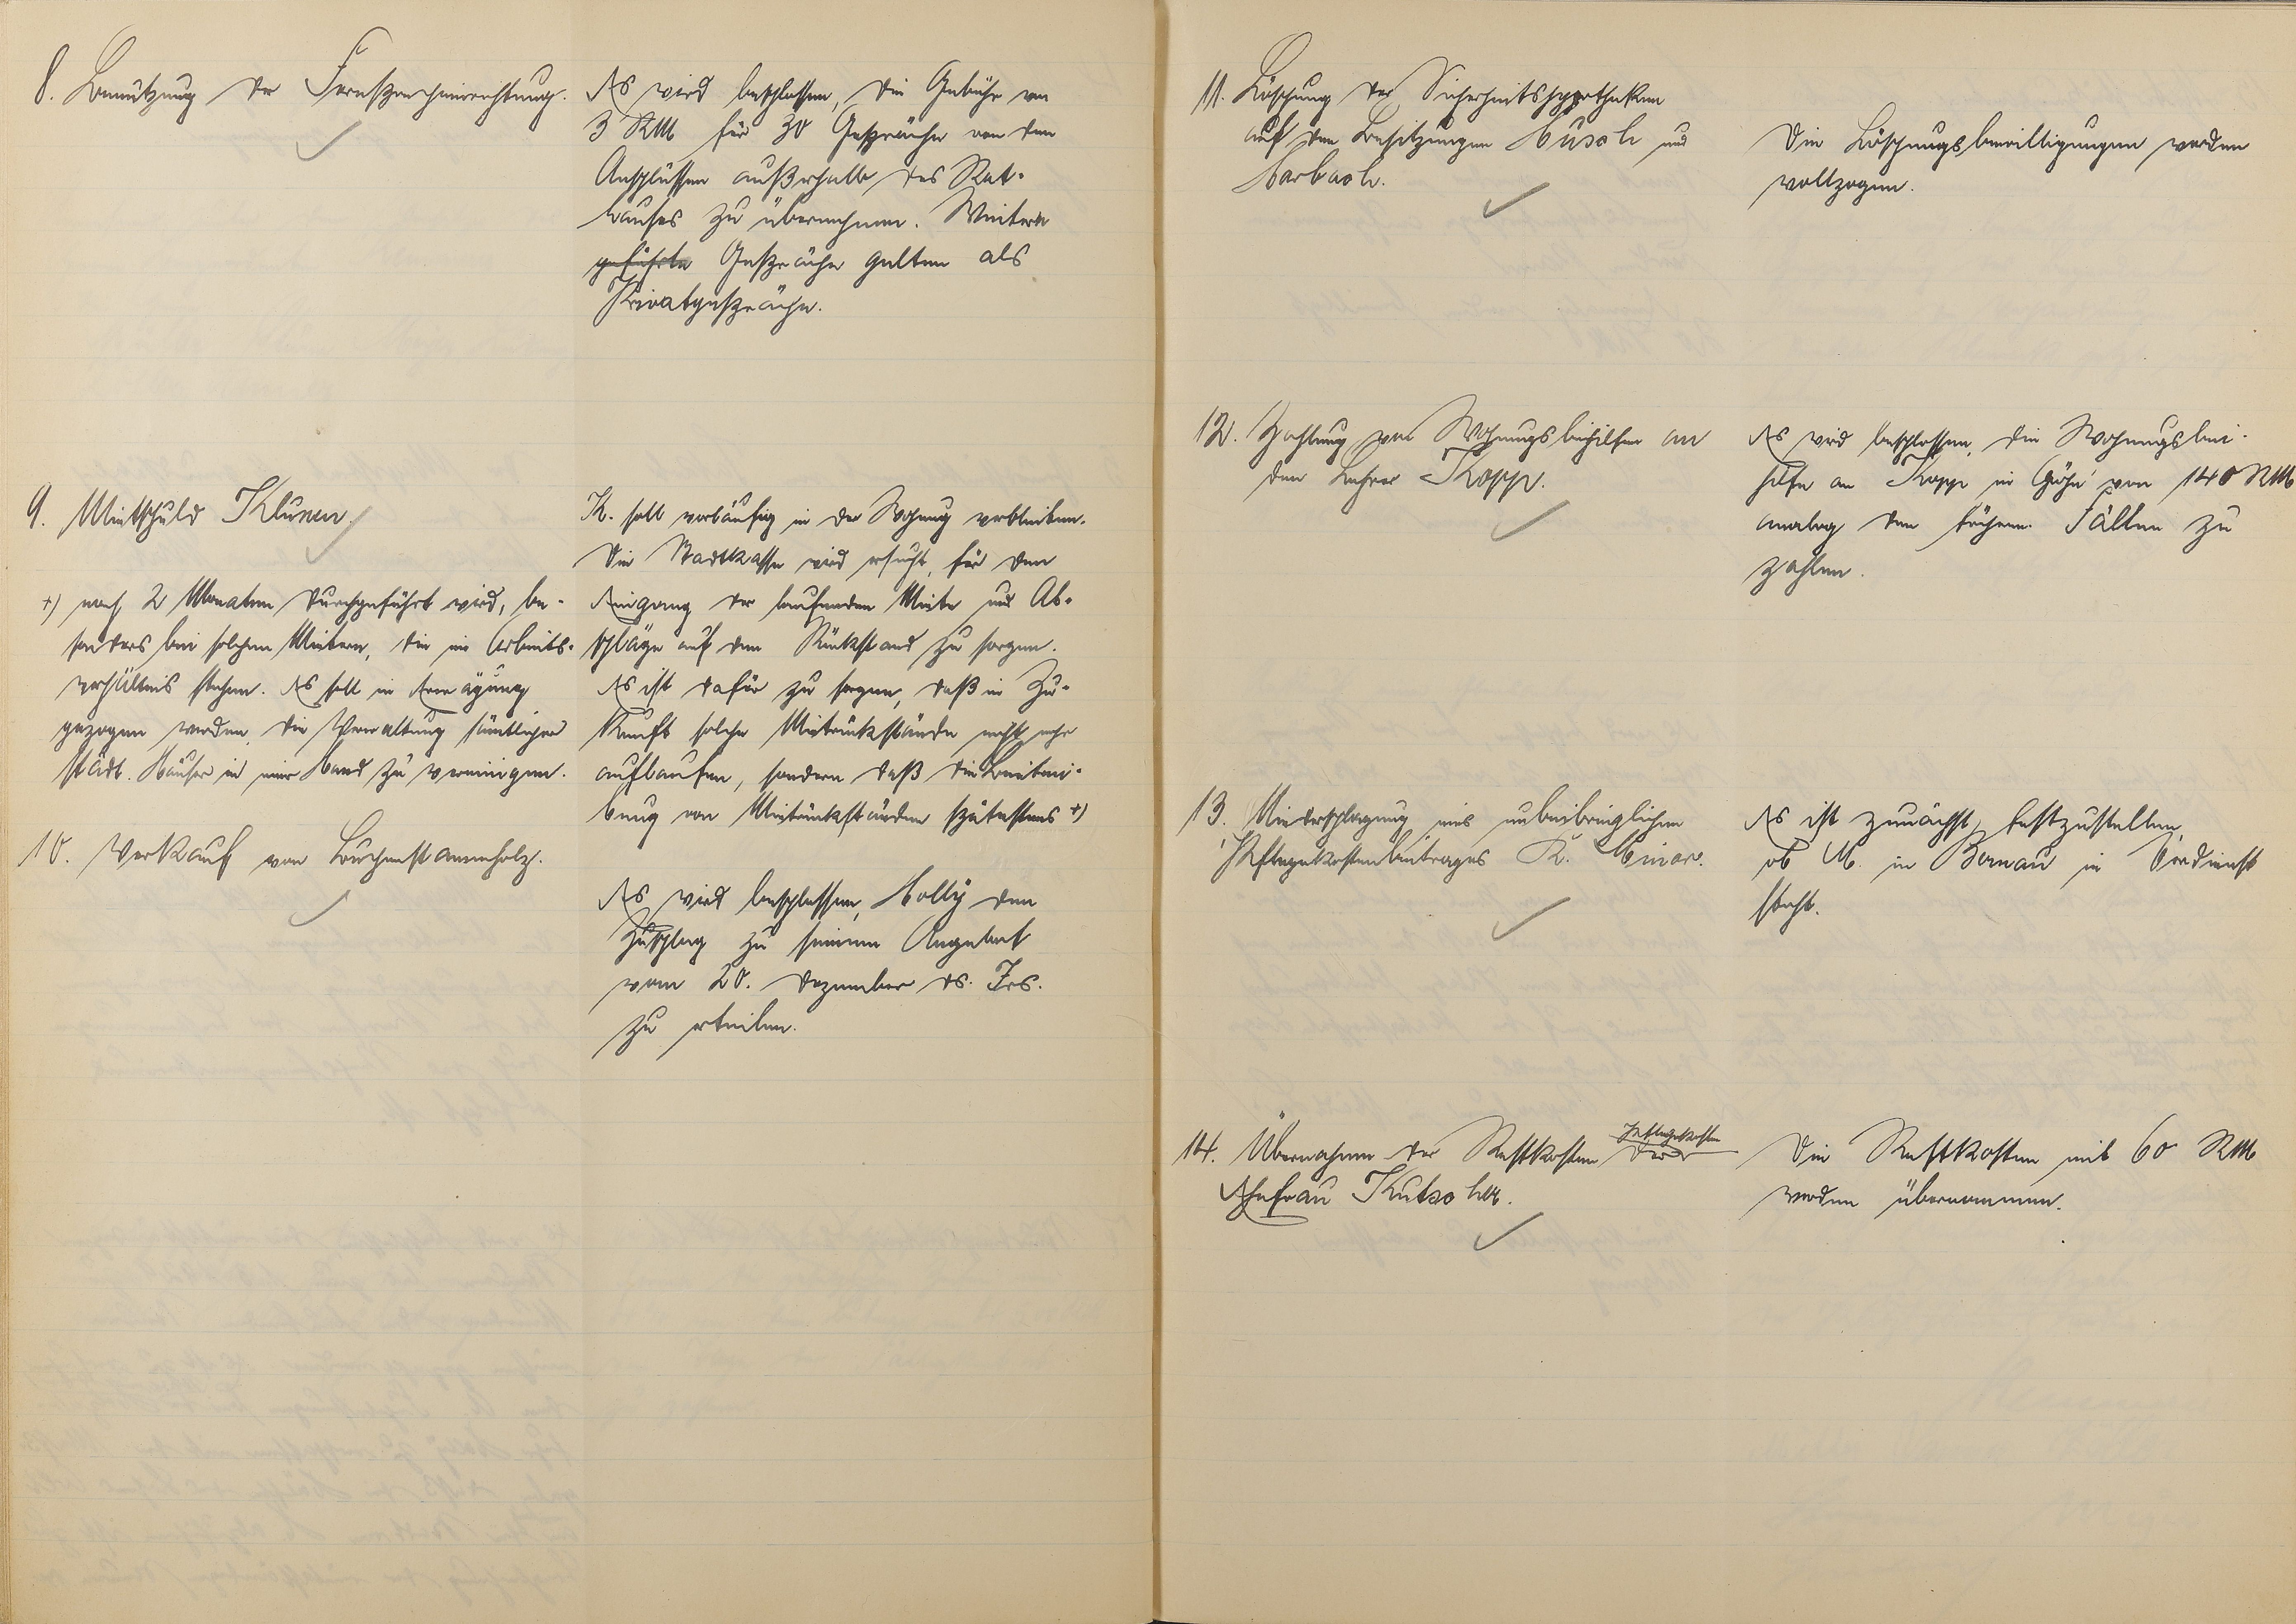 8. Benutzung der Fernsprecheinrichtung.
Es wird beschlossen, die Gebühr von
3 RM für 30 Gespräche von den
Anschlüssen außerhalb des Rat-
hauses zu übernehmen. Weitere
geführte Gespräche gelten als
Privatgespräche.
9. Mietschuld Klunen.
K. soll vorläufig in der Wohnung verbleiben.
Die Stadtkasse wird ersucht, für den
Eingang der laufenden Miete und Ab-
schläge auf den Rückstand zu sorgen.
Es ist dafür zu sorgen, daß in Zu-
kunft solche Mietrückstände nicht mehr
auflaufen, sondern daß die Beitrei-
bung von Mietrückständen spätestens +)
+) nach 2 Monaten durchgeführt wird, be-
sonders bei solchen Mietern, die im Arbeits-
verhältnis stehen. Es soll in Erwägung
gezogen werden, die Verwaltung sämtlicher
städt. Häuser in einer Hand zu vereinigen.
10. Verkauf von Buchenstammholz.
Es wird beschlossen, Holly den
Zuschlag zu seinem Angebot
vom 20. Dezember ds. Jrs.
zu erteilen.
11. Löschung der Sicherheitshypotheken
auf den Besitzungen Büsch und
Harbach.
Die Löschungsbewilligungen werden
vollzogen.
12. Zahlung von Wohnungsbeihilfen an
den Lehrer Kopp.
Es wird beschlossen, die Wohnungsbei-
hilfe an Kopp in Höhe von 140 RM
analog den früheren Fällen zu
zahlen.
13. Niederschlagung eines unbeibringlichen
Pflegekostenbeitrages K.
Es ist zunächst festzustellen,
ob M. in Bernau in Verdienst
steht.
14. Übernahme der Restkosten Pflegekosten der
Ehefrau Kutscher.
Die Restkosten mit 60 RM
werden übernommen.